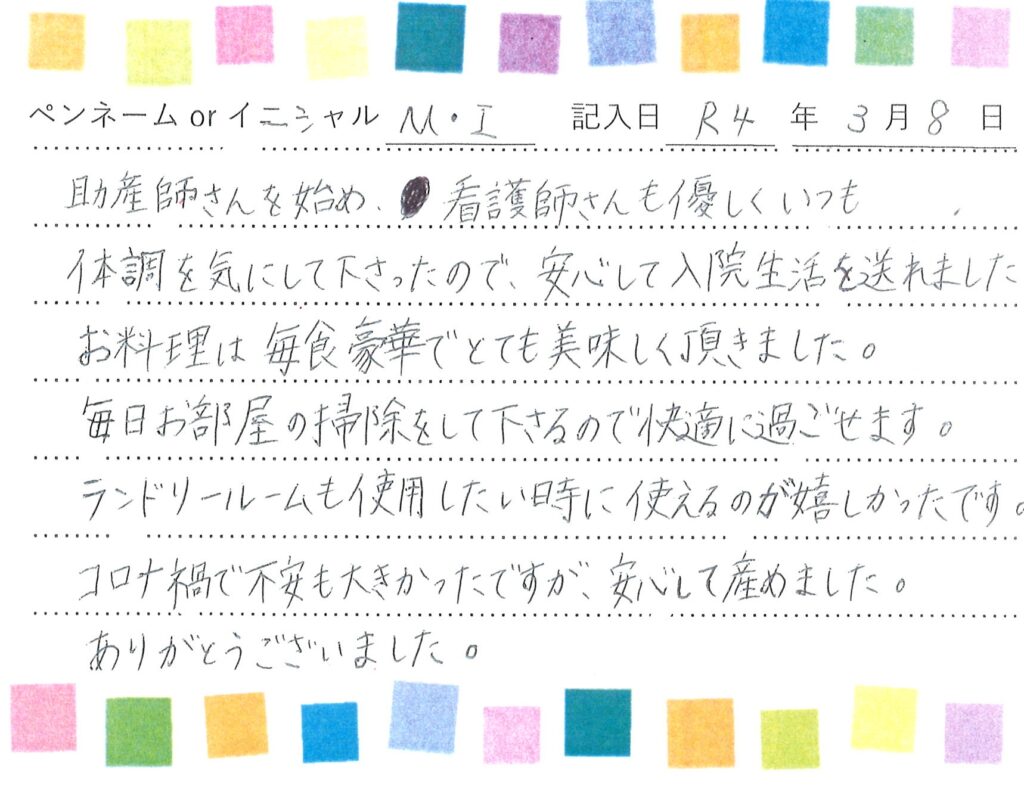 ペンネーム or イニシャル M・I 記入日 R4 年 3 月 8 日
助産師さんを始め、看護師さんも優しくいつも
体調を気にして下さったので、安心して入院生活を送れました
お料理は毎食豪華でとても美味しく頂きました。
毎日お部屋の掃除をして下さるので快適に過ごせます。
ランドリールームも使用したい時に使えるのが嬉しかったです。
コロナ禍で不安も大きかったですが、安心して産めました。
ありがとうございました。